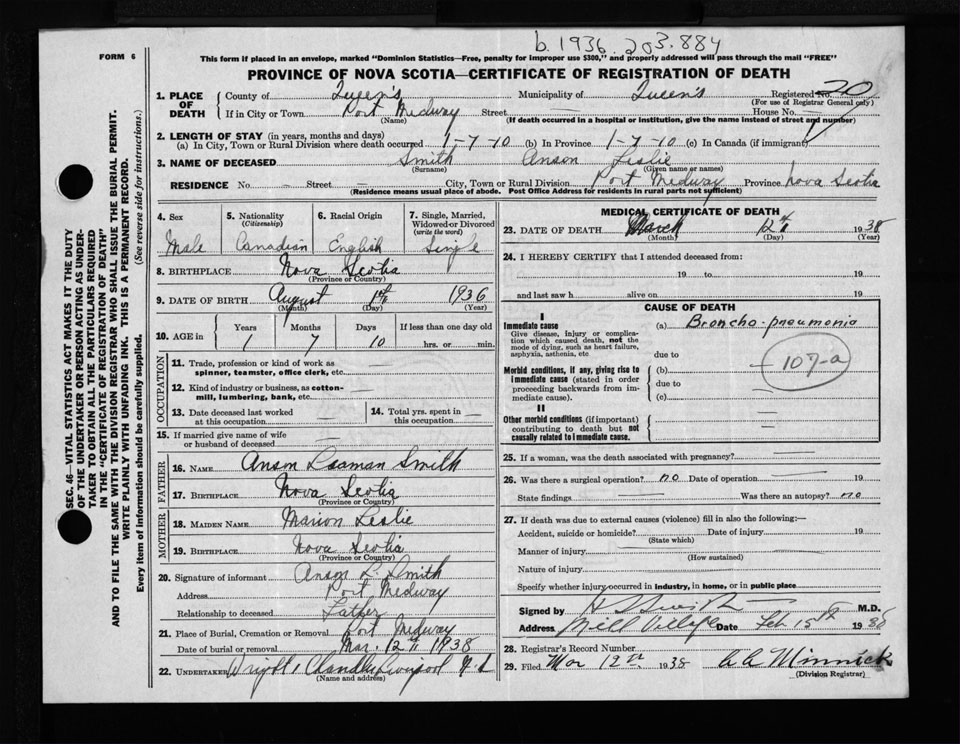 b. 1936. 203.884
FORM 6
This form if placed in an envelope, marked "Dominion Statistics—Free, penalty for improper use $300," and properly addressed will pass through the mail "FREE"
PROVINCE OF NOVA SCOTIA—CERTIFICATE OF REGISTRATION OF DEATH
1. PLACE OF DEATH
County of Queen's Municipality of Queen's Registered No. 20
(For use of Registrar General only)
If in City or Town Port Medway Street — House No.
(Name) (If death occurred in a hospital or institution, give the name instead of street and number)
2. LENGTH OF STAY (in years, months and days)
(a) In City, Town or Rural Division where death occurred 1-7-10 (b) In Province 1-7-10 (c) In Canada (if immigrant)
3. NAME OF DECEASED Smith Anson Leslie
(Surname) (Given name or names)
RESIDENCE No. — Street — City, Town or Rural Division Port Medway Province Nova Scotia
(Residence means usual place of abode. Post Office Address for residents in rural parts not sufficient)
4. Sex
Male
5. Nationality
(Citizenship)
Canadian
6. Racial Origin
English
7. Single, Married, Widowed or Divorced
(write the word)
Single
8. BIRTHPLACE Nova Scotia
(Province or Country)
9. DATE OF BIRTH August 1st 1936
(Month) (Day) (Year)
10. AGE in
Years Months Days If less than one day old
1 7 10 hrs. or min.
OCCUPATION
11. Trade, profession or kind of work as
spinner, teamster, office clerk, etc. —
12. Kind of industry or business, as cotton-
mill, lumbering, bank, etc. —
13. Date deceased last worked
at this occupation —
14. Total yrs. spent in
this occupation —
15. If married give name of wife
or husband of deceased —
FATHER
16. NAME Anson Seaman Smith
17. BIRTHPLACE Nova Scotia
(Province or Country)
MOTHER
18. MAIDEN NAME Marion Leslie
19. BIRTHPLACE Nova Scotia
(Province or Country)
20. Signature of informant Anson L. Smith
Address Port Medway
Relationship to deceased Father
21. Place of Burial, Cremation or Removal Port Medway
Date of burial or removal Mar. 12th 1938
22. UNDERTAKER Liverpool N.S.
(Name and address)
MEDICAL CERTIFICATE OF DEATH
23. DATE OF DEATH March 12th 1938
(Month) (Day) (Year)
24. I HEREBY CERTIFY that I attended deceased from:
19 to 19
and last saw h alive on 19
CAUSE OF DEATH
I
Immediate cause
Give disease, injury or complication which caused death, not the mode of dying, such as heart failure, asphyxia, asthenia, etc
(a) Broncho-pneumonia
due to
Morbid conditions, if any, giving rise to immediate cause (stated in order proceeding backwards from immediate cause).
(b) — 107-a
due to
(c)
II
Other morbid conditions (if important) contributing to death but not causally related to immediate cause.
25. If a woman, was the death associated with pregnancy? —
26. Was there a surgical operation? no Date of operation — 19
State findings — Was there an autopsy? no
27. If death was due to external causes (violence) fill in also the following:—
Accident, suicide or homicide? Date of injury 19
(State which)
Manner of injury
(How sustained)
Nature of injury
Specify whether injury occurred in industry, in home, or in public place
Signed by M.D.
Address Mill Village Date Feb 15th 1938
28. Registrar's Record Number
29. Filed Mar 12th 1938 Minnick
(Division Registrar)
SEC. 46—VITAL STATISTICS ACT MAKES IT THE DUTY
OF THE UNDERTAKER OR PERSON ACTING AS UNDER-
TAKER TO OBTAIN ALL THE PARTICULARS REQUIRED
IN THE "CERTIFICATE OF REGISTRATION OF DEATH"
AND TO FILE THE SAME WITH THE DIVISION REGISTRAR WHO SHALL ISSUE THE BURIAL PERMIT.
WRITE PLAINLY WITH UNFADING INK. THIS IS A PERMANENT RECORD.
Every item of information should be carefully supplied. (See reverse side for instructions.)